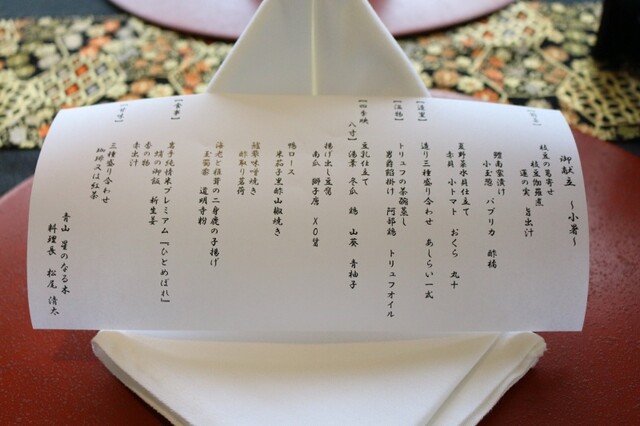 御献立 ～小暑～
枝豆の葛寄せ
枝豆伽羅煮
蓮の実 旨出汁
鱧南蛮漬け
小玉葱 パプリカ 酢橘
夏野菜水貝仕立て
赤貝 小トマト おくら 丸十
【造里】
造り三種盛り合わせ あしらい一式
【温物】
トリュフの茶碗蒸し
男爵餡掛け 阿部鶏 トリュフオイル
【四季映 八寸】
豆乳仕立て
湯葉 冬瓜 鶏 山葵 青柚子
揚げ出し豆腐
南瓜 獅子唐 XO醤
鴨ロース
米茄子黒酢山椒焼き
酢取り茗荷
海老と椎茸の二身鹿の子揚げ
玉蜀黍 道明寺粉
【食事】
岩手純情米プレミアム『ひとめぼれ』
鯛の御飯 新生姜
香の物
赤出汁
【甘味】
三種盛り合わせ
珈琲又は紅茶
青山 星のなる木
料理長 松尾 清太